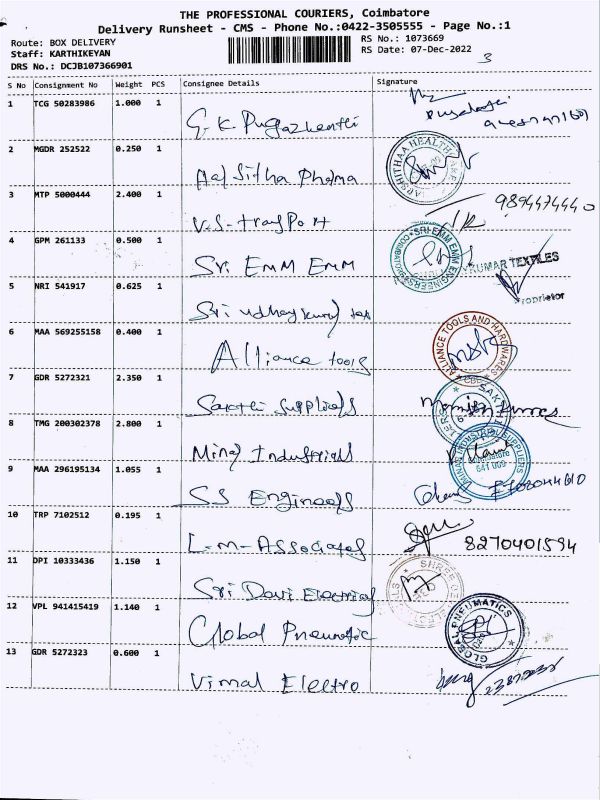 THE PROFESSIONAL COURIERS, Coimbatore
Delivery Runsheet - CMS - Phone No.:0422-3505555 - Page No.:1
Route: BOX DELIVERY
RS No.: 1073669
Staff: KARTHIKEYAN
RS Date: 07-Dec-2022
3
DRS No.: DCJB107366901
S No Consignment No Weight PCS Consignee Details Signature
1 TCG 50283986 1.000 1 G.K Pugazhenthi
2 MGDR 252522 0.250 1 Haj Sitha Pharma
3 MTP 5000444 2.400 1 V.S. trasport 9894474440
4 GPM 261133 0.500 1 Sri EMM EMM SRI EMM EMM ENGINEERS
5 NRI 541917 0.625 1 Sri udhaykumar tex YKUMAR TEXTILES
Proprietor
6 MAA 569255158 0.400 1 Alliance tools ALLIANCE TOOLS AND HARDWARES
7 GDR 5272321 2.350 1 Sakthi Suppliers SAKT
8 TMG 200302378 2.800 1 Minaj Industrials MINAJ INDUSTRIAL SUPPLIERS
641 009
9 MAA 296195134 1.055 1 SS Engineers
10 TRP 7102512 0.195 1 L.M-Associates 8270401594
11 DPI 10333436 1.150 1 Sri Davi Electrical
12 VPL 941415419 1.140 1 Global Pneumatic GLOBAL PNEUMATICS
13 GDR 5272323 0.600 1 Vimal Electro